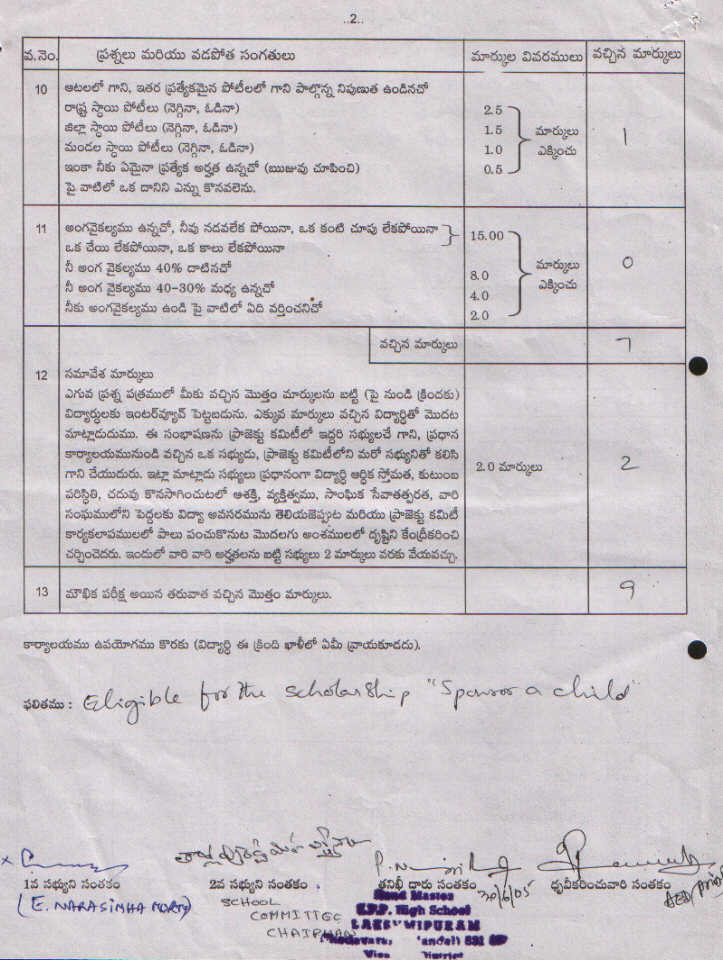 ..2..
వ.నెం. ప్రశ్నలు మరియు వడపోత సంగతులు మార్కుల వివరములు వచ్చిన మార్కులు
10 ఆటలలో గాని, ఇతర ప్రత్యేకమైన పోటీలలో గాని పాల్గొన్న నిపుణుత ఉండినచో
రాష్ట్ర స్థాయి పోటీలు (నెగ్గినా, ఓడినా) 2.5
జిల్లా స్థాయి పోటీలు (నెగ్గినా, ఓడినా) 1.5 మార్కులు 1
మండల స్థాయి పోటీలు (నెగ్గినా, ఓడినా) 1.0 ఎక్కించు
ఇంకా నీకు ఏమైనా ప్రత్యేక అర్హత ఉన్నచో (ఋజువు చూపించి) 0.5
పై వాటిలో ఒక దానిని ఎన్ను కొనవలెను.
11 అంగవైకల్యము ఉన్నచో, నీవు నడవలేక పోయినా, ఒక కంటి చూపు లేకపోయినా 15.00
ఒక చేయి లేకపోయినా, ఒక కాలు లేకపోయినా
నీ అంగ వైకల్యము 40% దాటినచో 8.0 మార్కులు 0
నీ అంగ వైకల్యము 40-30% మధ్య ఉన్నచో 4.0 ఎక్కించు
నీకు అంగవైకల్యము ఉండి పై వాటిలో ఏది వర్తించనిచో 2.0
వచ్చిన మార్కులు 7
12 సమావేశ మార్కులు
ఎగువ ప్రశ్న పత్రములో మీకు వచ్చిన మొత్తం మార్కులను బట్టి (పై నుండి క్రిందకు)
విద్యార్థులకు ఇంటర్‌వ్యూవ్ పెట్టబడును. ఎక్కువ మార్కులు వచ్చిన విద్యార్థితో మొదట
మాట్లాడుదుము. ఈ సంభాషణను ప్రాజెక్టు కమిటీలో ఇద్దరి సభ్యులచే గాని, ప్రధాన
కార్యాలయమునుండి వచ్చిన ఒక సభ్యుడు, ప్రాజెక్టు కమిటీలోని మరో సభ్యునితో కలిసి
గాని చేయుదురు. ఇట్లా మాట్లాడు సభ్యులు ప్రధానంగా విద్యార్థి ఆర్థిక స్తోమత, కుటుంబ 2.0 మార్కులు 2
పరిస్థితి, చదువు కొనసాగించుటలో ఆశక్తి, వ్యక్తిత్వము, సాంఘిక సేవాతత్పరత, వారి
సంఘములోని పెద్దలకు విద్యా అవసరమును తెలియజెప్పుట మరియు ప్రాజెక్టు కమిటీ
కార్యకలాపములలో పాలు పంచుకొనుట మొదలగు అంశములలో దృష్టిని కేంద్రీకరించి
చర్చించెదరు. ఇందులో వారి వారి అర్హతలను బట్టి సభ్యులు 2 మార్కులు వరకు వేయవచ్చు.
13 మౌఖిక పరీక్ష అయిన తరువాత వచ్చిన మొత్తం మార్కులు. 9
కార్యాలయము ఉపయోగము కొరకు (విద్యార్థి ఈ క్రింది ఖాళీలో ఏమీ వ్రాయకూడదు).
ఫలితము : Eligible for the scholarship "Sponsor a child"
1వ సభ్యుని సంతకం 2వ సభ్యుని సంతకం . తనిఖీ దారు సంతకం 30/6/05 ధృవీకరించువారి సంతకం
(E. NARASIMHA MORTY) SCHOOL
COMMITTEE
CHAIRMAN
Head Master
High School
LAKSHMIPURAM